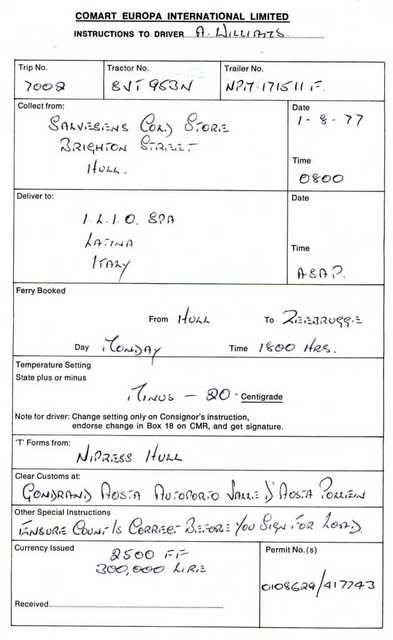 COMART EUROPA INTERNATIONAL LIMITED
INSTRUCTIONS TO DRIVER A. WILLIAMS.
Trip No. Tractor No. Trailer No.
7002 SVT 953N NPIT 171511 F.
Collect from: Date
SALVESENS COLD STORE 1-8-77
BRIGHTON STREET
HULL. Time
0800
Deliver to: Date
I.L.I.O. SPA
LATINA Time
ITALY ASAP.
Ferry Booked
From HULL To ZEEBRUGGE
Day MONDAY Time 1800 HRS.
Temperature Setting
State plus or minus
MINUS - 20 Centigrade
Note for driver: Change setting only on Consignor's instruction,
endorse change in Box 18 on CMR, and get signature.
'T' Forms from:
NIPRESS HULL
Clear Customs at:
GONDRAND AOSTA AUTOPORTO VALLE D'AOSTA POLLEIN
Other Special Instructions
ENSURE COUNT IS CORRECT BEFORE YOU SIGN FOR LOAD.
Currency Issued Permit No.(s)
2500 FF
300,000 LIRE
0108629/417743
Received